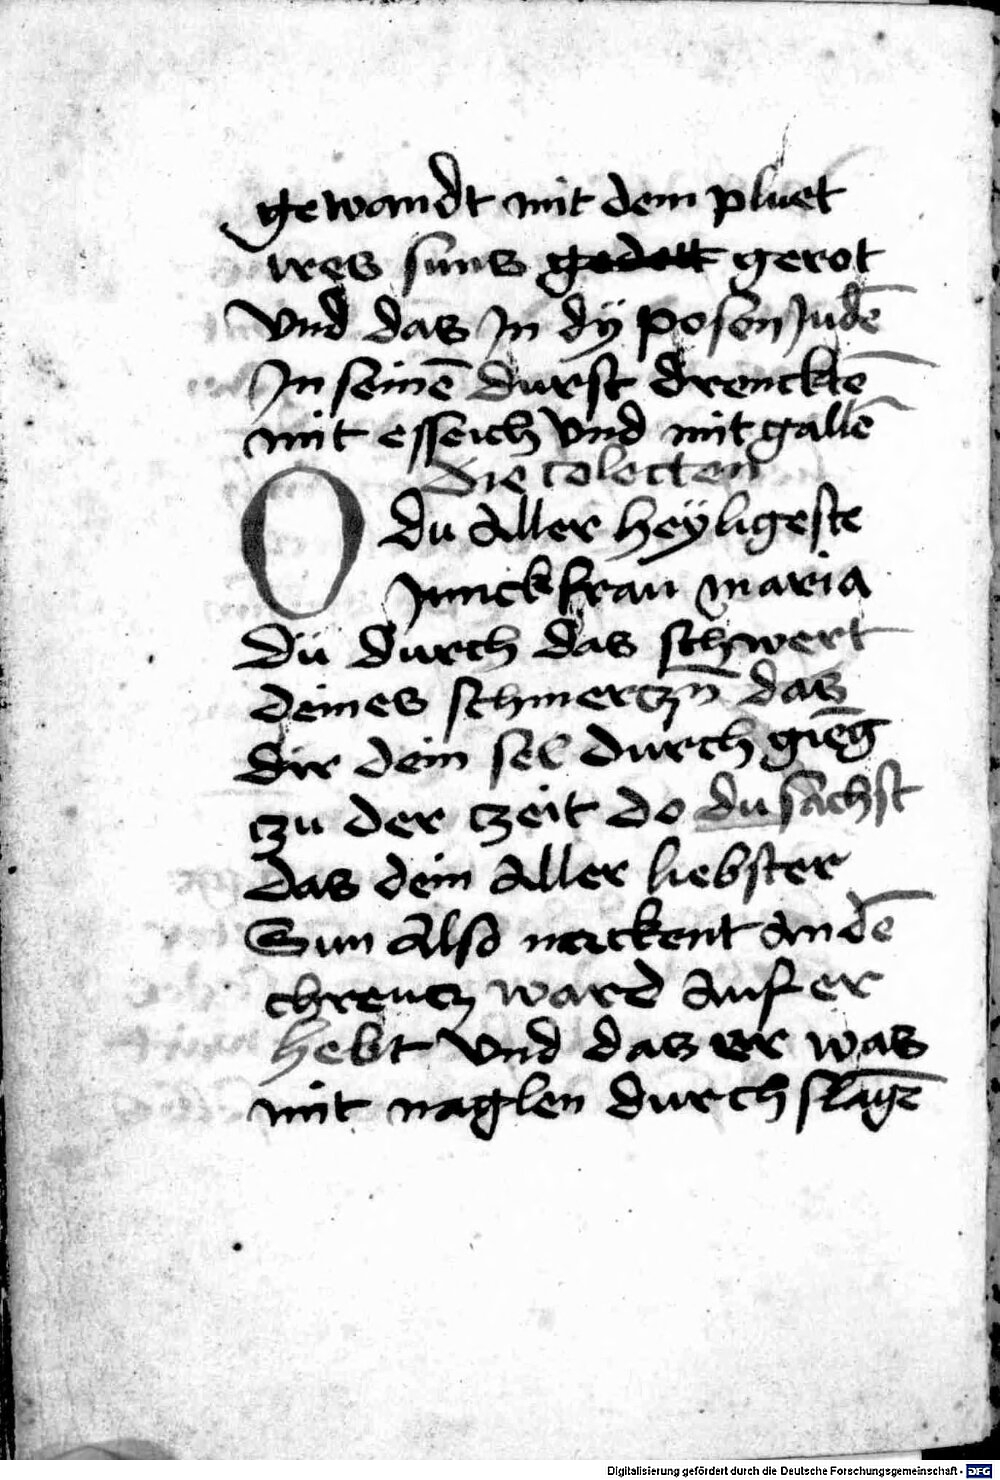 gewandt mit dem pluet
ires suns gedott gerot
Vnd das Jn dÿ posen Judē
Jn seinē durst drencktē
mit esseich vnd mit gallē
Die colecten
O du Aller heÿligeste
Junckfrau maria
Dü durch das schwert
deines schmerczn̄ das
dir dein sel durch gienḡ
czu der czeit do du sachst
das dein Aller liebster
Sun Also nackent An dē
chreucz ward Auf er
hebt vnd das er was
mit naglen durch slagē
Digitalisierung gefördert durch die Deutsche Forschungsgemeinschaft - DFG